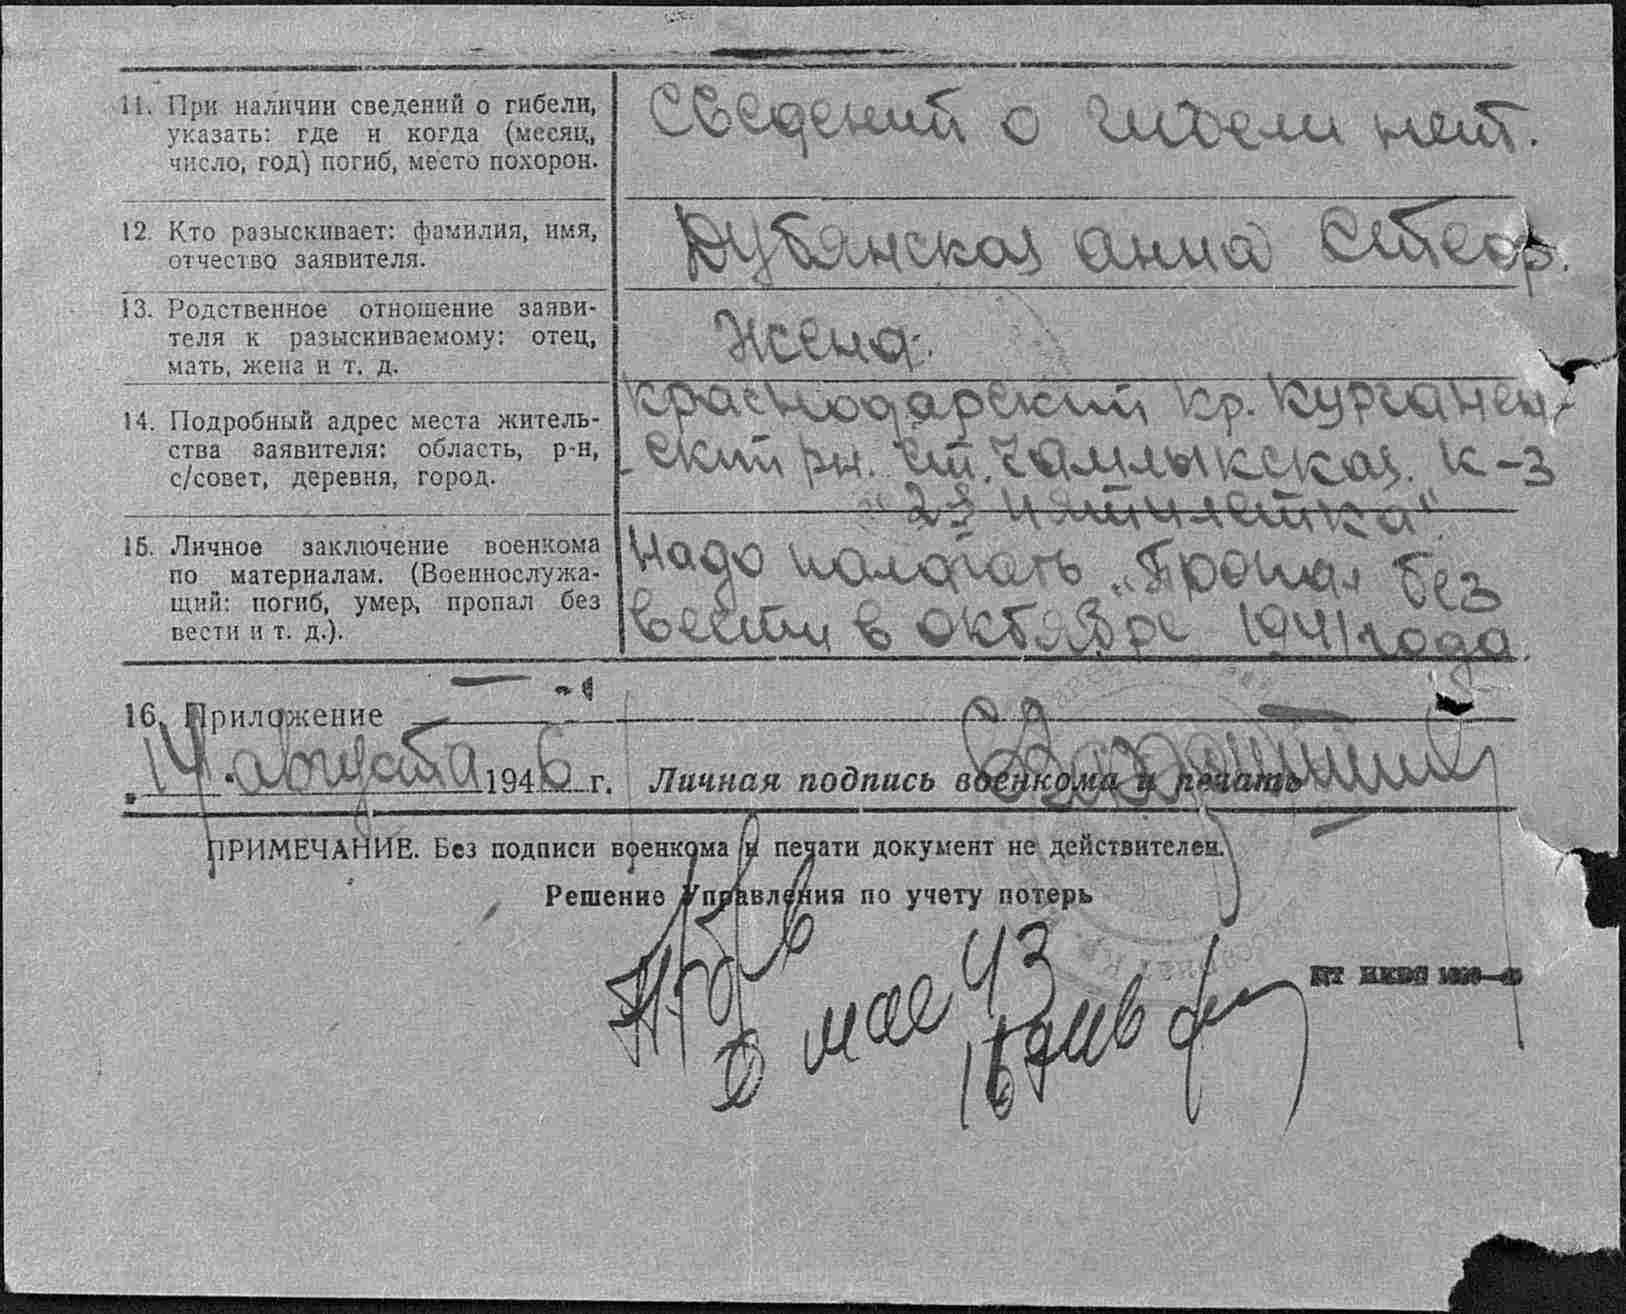 11. При наличии сведений о гибели,
указать: где и когда (месяц,
число, год) погиб, место похорон.
Сведений о гибели нет.
12. Кто разыскивает: фамилия, имя,
отчество заявителя.
Дубянская анна
13. Родственное отношение заяви-
теля к разыскиваемому: отец,
мать, жена и т. д.
Жена.
14. Подробный адрес места житель-
ства заявителя: область, р-н,
с/совет, деревня, город.
Краснодарский кр. Курганен-
ский рн. ст. Чамлыкская. к-з
"2я пятилетка"
15. Личное заключение военкома
по материалам. (Военнослужа-
щий: погиб, умер, пропал без
вести и т. д.).
Надо полагать "Пропал без
вести в октябре 1941 года.
16. Приложение
14 августа 1946 г. Личная подпись военкома и печать
ПРИМЕЧАНИЕ. Без подписи военкома и печати документ не действителен.
Решение Управления по учету потерь
в мае 43